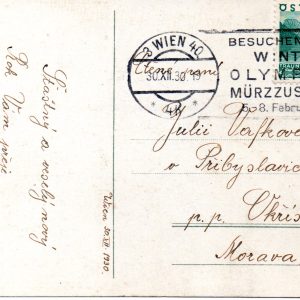 Šťastný a veselý nový
Rok Vám přeje
Wien 30.XII. 1930.
3 WIEN 40
30.XII.30.19
BESUCHEN
WINT
OLYM
MÜRZZUS
5.-8. Febru
ÖST
Ctěná paní
Julii
v Přibyslavic
p. p. Okříš
Morava